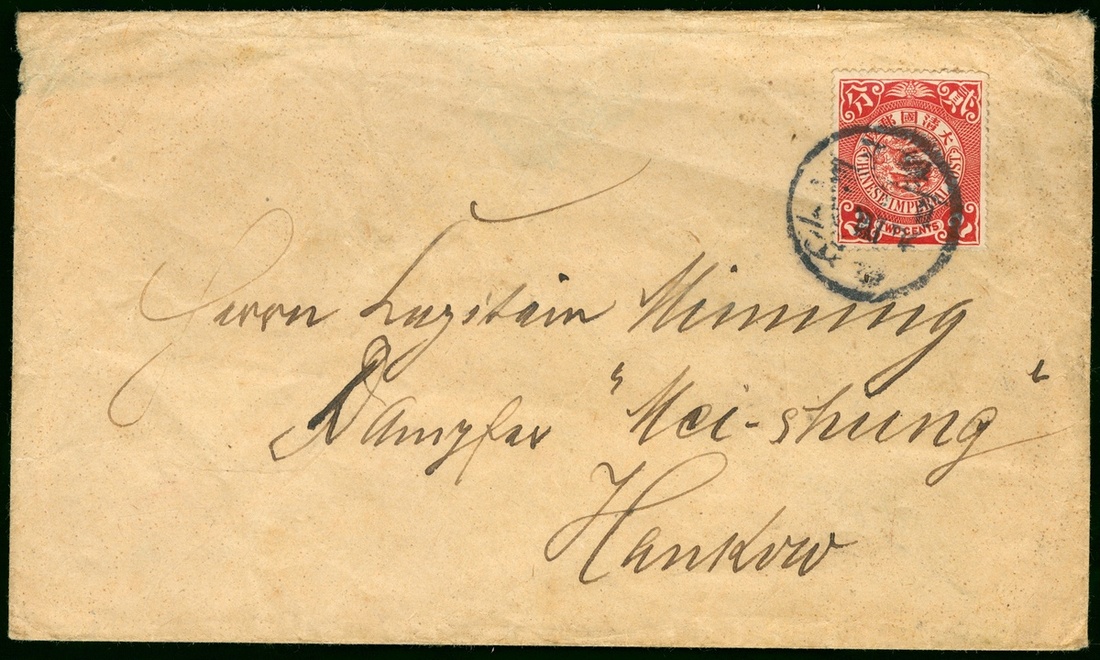 分 貳
大清國郵
CHINESE IMPERIAL POST
2 TWO CENTS 2
Herrn Capitain Minnung
Dampfer "Mei-shung"
Hankow